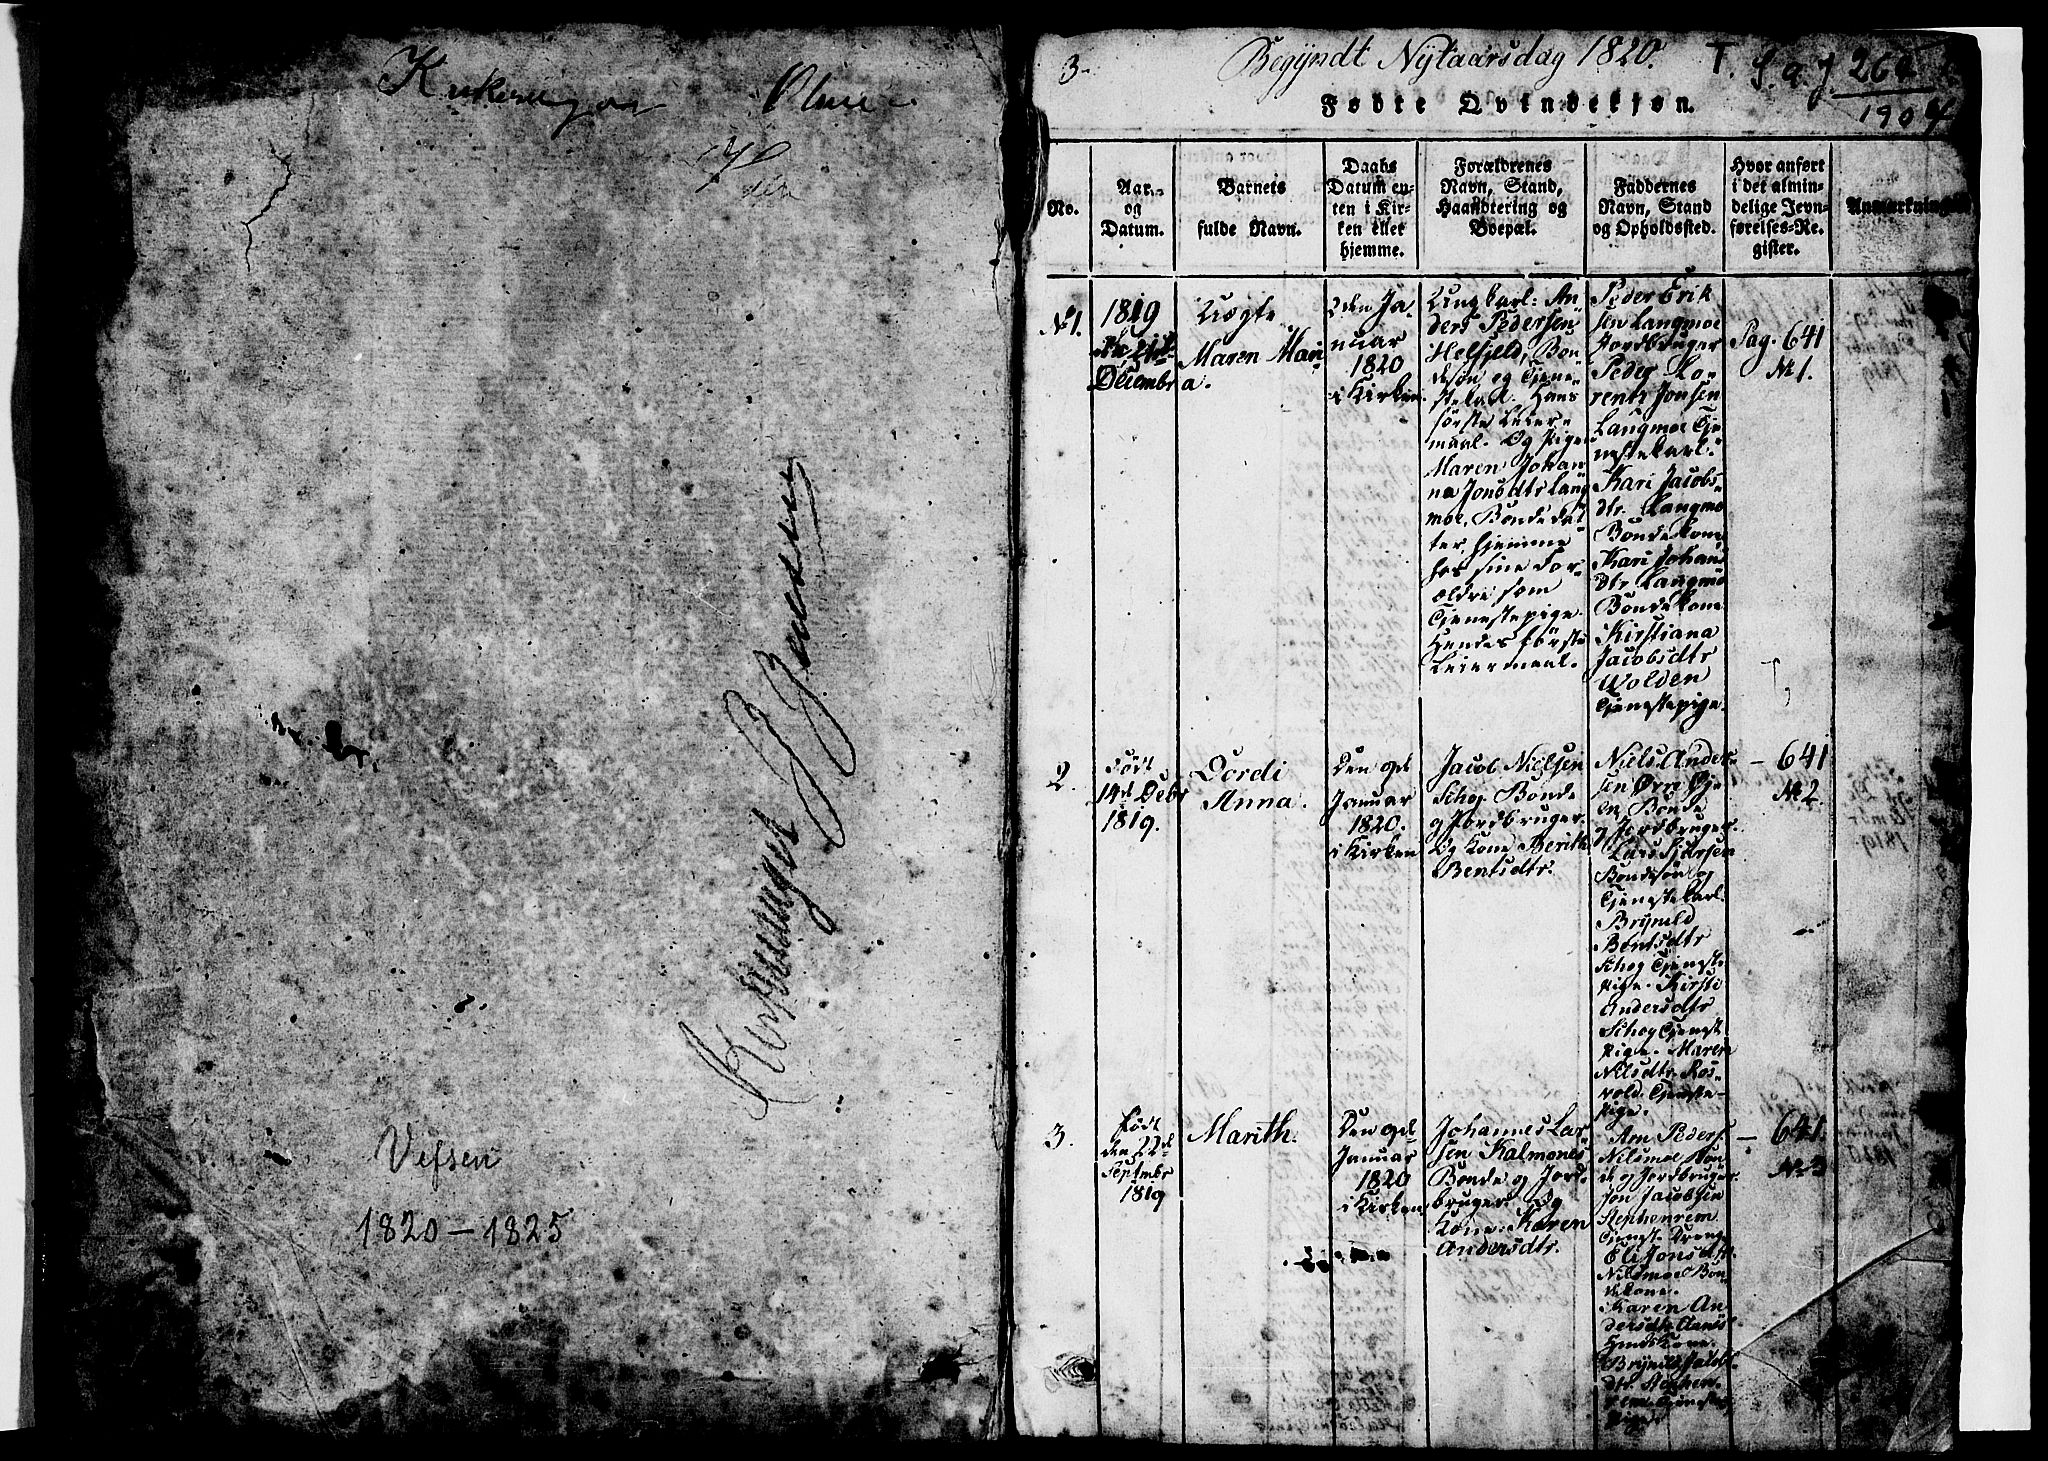 Vefsen
1820-1825
3.
Begyndt Nytaarsdag 1820.
T. S. a. J. 264
1904
Fødte Qvindekjøn.
No.
Aar
og
Datum.
Barnets
fulde Navn.
Daabs
Datum en-
ten i Kir-
ken eller
hjemme.
Forældrenes
Navn, Stand,
Haandtering og
Boepæl.
Faddernes
Navn, Stand
og Opholdssted.
Hvor anført
i det almin-
delige Jevn-
førelses-Re-
gister.
Anmærkninger
No 1.
1819
Decembr
Uægte
Maren Mari
a.
2den Ja
nuar
1820
i Kirken
Ungkarl: An
ders Pedersen
Helfjeld, Bon
desøn og Tjene
stekarl. Hans
første Leier
maal. Og Pige
Maren Johan
na Jonsdtr Lang
moe, Bondedat
ter, hjemme
hos sine For
ældre som
Tjenestepige
Hendes første
Leiermaal.
Peder Erik
sen Langmoe
Jordbruger
Peder Lo
rentz Jonsen
Langmoe Tje
nestekarl.
Kari Jacobs
dtr. Langmo
Bondekone
Kari Johans
dtr Langmo
Bondekone
Kirstiana
Jacobsdtr
Wolden
Tjenestepige.
Pag. 641
No 1.
2.
Født
14d Debr
1819.
Dordi
Anna.
Den 9de
Januar
1820.
i Kirken
Jacob Nielsen
Schog Bonde
og Jordbruger
Og Kone Berith
Bentsdtr.
Niels Ander
sen
Bonde
og Jordbruger.
Lars
Bondesøn og
Tjenestekarl.
Brynild
Bentsdtr
Schog Tjeneste
pige. Kirsti
Andersdtr
Schog Tjenest
pige. Maren
Nilsdtr. Ros
vold. Tjeneste
pige.
- 641
No 2.
3.
Født
den 22d
Septmbr
1819
Marith.
Den 9de
Januar
1820
i Kirken
Johannes Lar
sen Kalmones
Bonde og Jord
bruger. Og
Kone. Karen
Andersdtr.
Arn Peders
Nilsmoe Bon
de og Jordbruger
Jon Jacobsen
Stephenrem
Tjenest. Dreng
Eli Jonsdtr
Nilsmoe Bon
dekone.
Karen An
dersdtr
Brynild Jacobs
dtr. Stephen
rem Tjeneste
pige
- 641
No 3